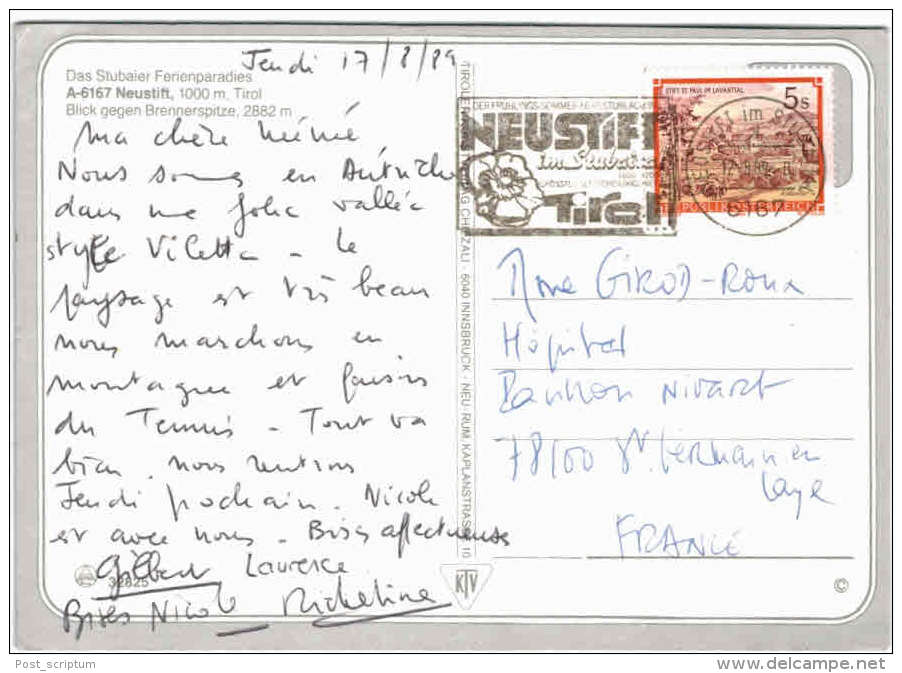 Jeudi 17/8/89
Das Stubaier Ferienparadies
A-6167 Neustift, 1000 m, Tirol
Blick gegen Brennerspitze, 2882 m
Ma chère Mémé
Nous sommes en Autriche
dans une jolie vallée
style Viletta - le
paysage est très beau
nous marchons en
montagne et faisons
du Tennis - Tout va
bien. nous rentrons
Jeudi prochain. Nicole
est avec nous - Bises affectueuses
Gilbert Laurence
32825
Bises Nicole Micheline
KTV
6040 INNSBRUCK - NEU-RUM, KAPLANSTRASSE 10
NEUSTIFT
im Stubaital
Tirol
STIFT ST. PAUL IM LAVANTTAL
5s
REPUBLIK ÖSTERREICH
6167
Mme GIROD-ROUX
Hôpital
Pavillon Nivart
78100 St. Germain en
Laye
FRANCE
©
Post_scriptum
delcampe.net